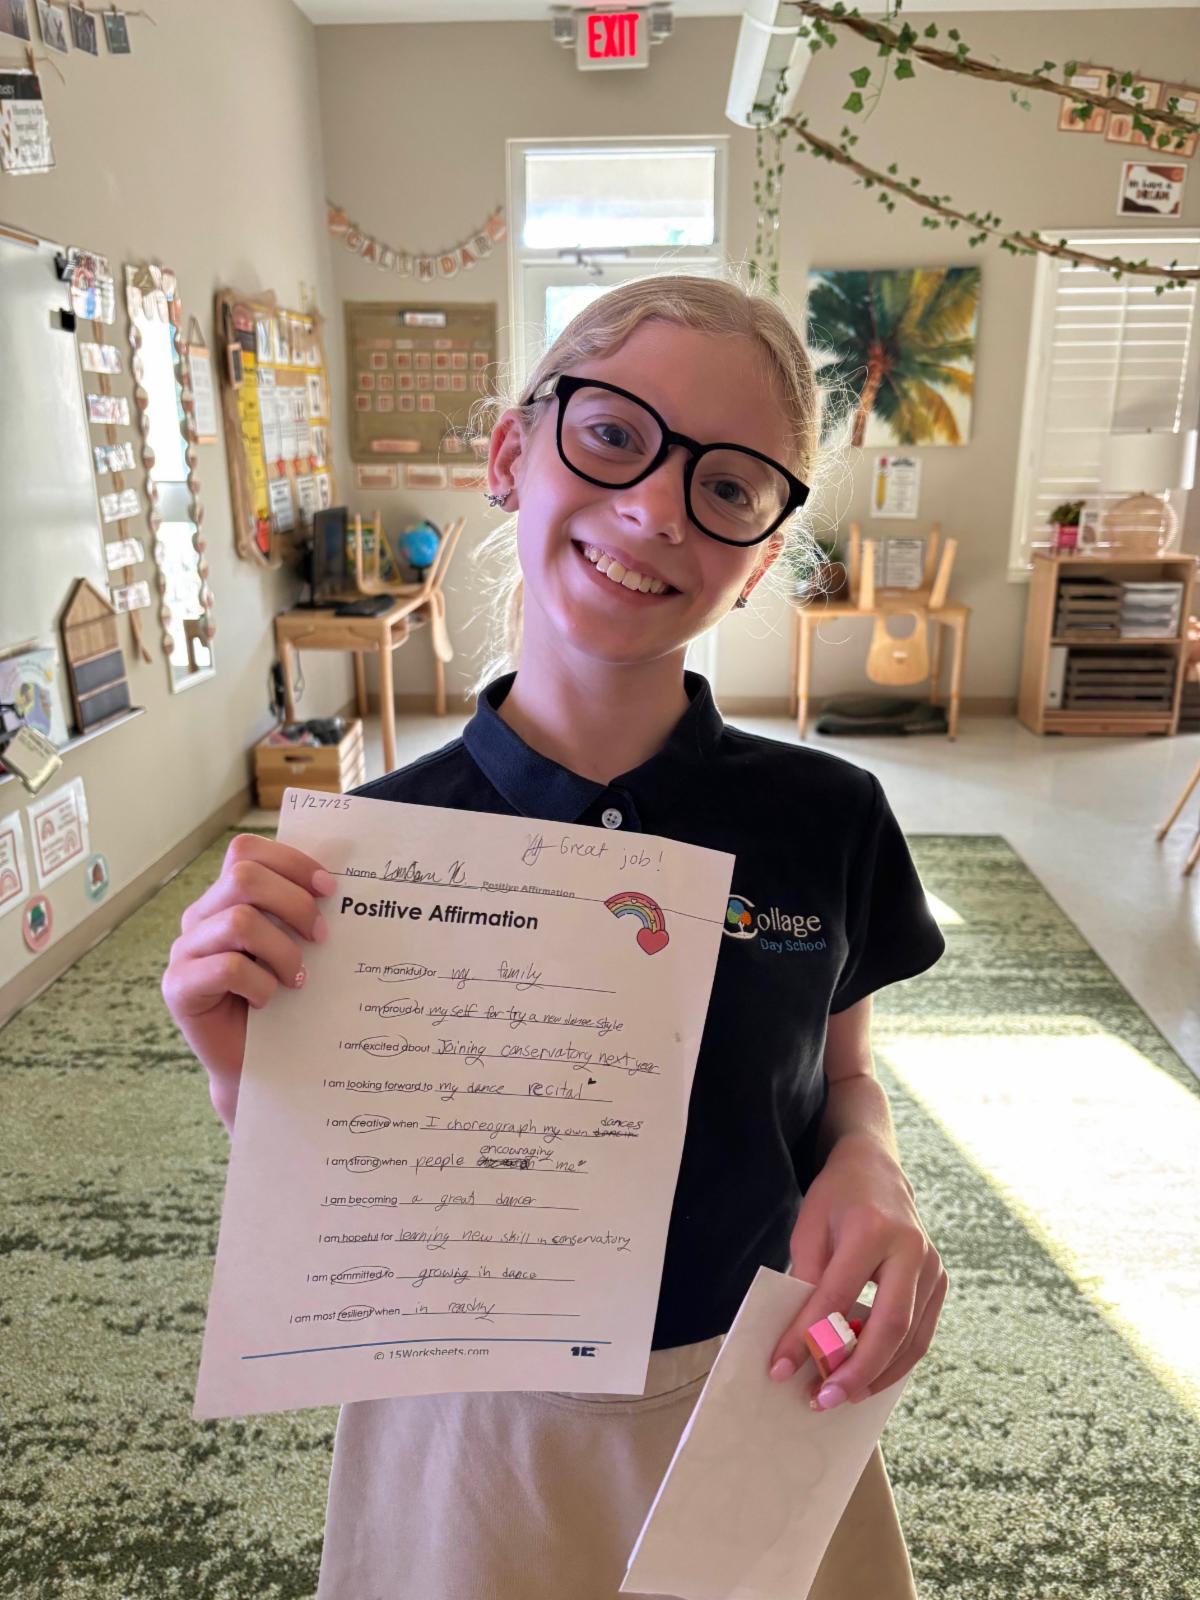 EXIT
CALENDAR
We have a
DREAM
4/27/25
Great job!
Name K. Positive Affirmation
Positive Affirmation
I am thankful for my family
I am proud of my self for try a new dance style
I am excited about Joining conservatory next year
I am looking forward to my dance recital
I am creative when I choreograph my own dances
I am strong when people encouraging me
I am becoming a great dancer
I am hopeful for learning new skill in conservatory
I am committed to growing in dance
I am most resilient when in
© 15Worksheets.com
Collage
Day School